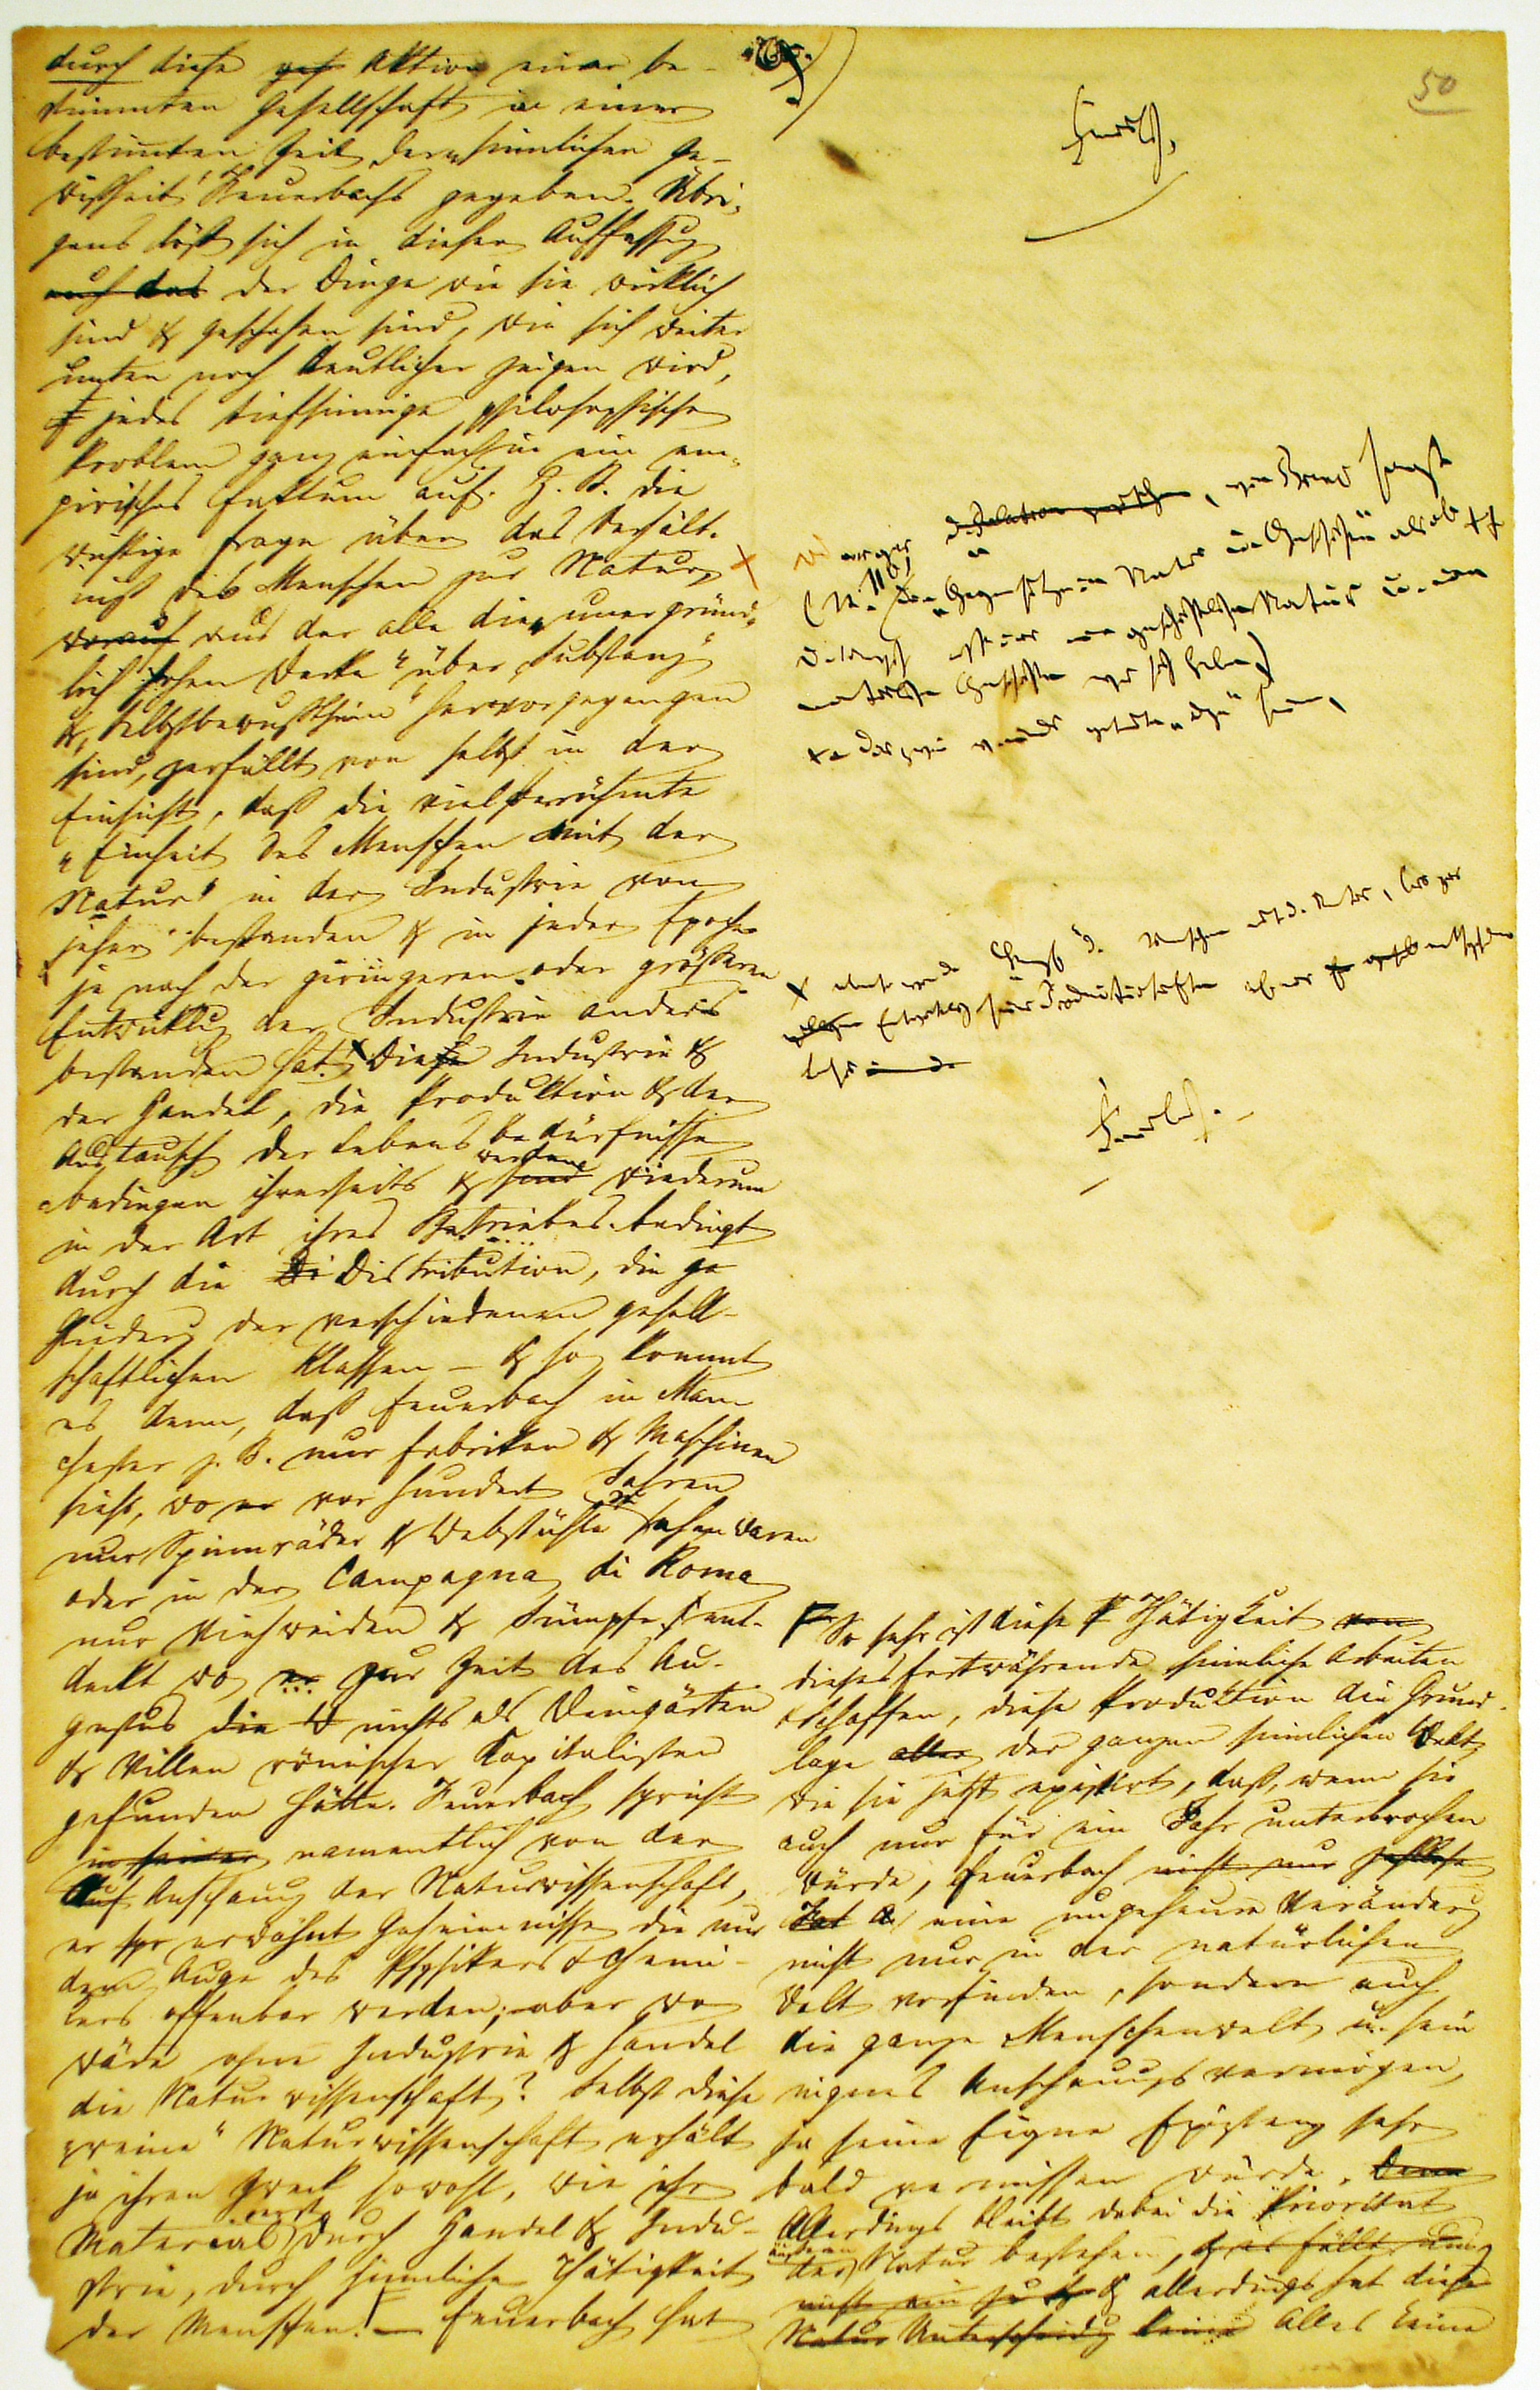 durch diese ges Aktion einer be-
stimmten Gesellschaft in einer
bestimmten Zeit der „sinnlichen Ge-
wißheit“ Feuerbachs gegeben. Übri-
gens löst sich in dieser Auffassung
auch das der Dinge wie sie wirklich
sind & geschehen sind, wie sich weiter
unten noch deutlicher zeigen wird,
jedes tiefsinnige philosophische
Problem ganz einfach in ein em-
pirisches Faktum auf. Z. B. die
wichtige Frage über das Verhält-
niß des Menschen zur Natur, ×
worauf aus der alle die „unergründ-
lich hohen Werke“ über „Substanz“
& „Selbstbewußtsein“ hervorgegangen
sind, zerfällt von selbst in der
Einsicht, daß die vielberühmte
„Einheit des Menschen mit der
Natur“ in der Industrie von
jeher bestanden & in jeder Epoche
je nach der geringeren oder größeren
Entwicklung der Industrie anders
bestanden hat. × Diese Industrie &
der Handel, die Produktion & der
Austausch der Lebensbedürfnisse
bedingen ihrerseits & sind werden wiederum
in der Art ihres Betriebes bedingt
durch die Di Distribution, die ge
Gliederung der verschiedenen gesell-
schaftlichen Klassen — & so kommt
es denn, daß Feuerbach in Man-
chester z. B. nur Fabriken & Maschinen
sieht, wo er vor hundert Jahren
nur Spinnräder & Webstühle zu sehen waren
oder in der Campagna di Roma
nur Viehweiden & Sümpfe ent-
deckt wo er zur Zeit des Au-
gustus die W nichts als Weingärten
& Villen römischer Kapitalisten
gefunden hätte. Feuerbach spricht
in seiner namentlich von der
Auf Anschauung der Naturwissenschaft,
er spr erwähnt Geheimnisse die nur
dem Auge des Physikers & Chemi-
kers offenbar werden; aber wo
wäre ohne Industrie & Handel
die Naturwissenschaft? Selbst diese
„reine“ Naturwissenschaft erhält
ja ihren Zweck sowohl, wie ihr
Material erst durch Handel & Indu-
strie, durch sinnliche Thätigkeit
der Menschen. — Feuerbach hat
50
Feuerbach.
, wie Bruno sagt
„Gegensätze in Natur u. Geschichte“ als ob ××
geschichtliche Natur u. eine
natürliche Geschichte vor sich habe)
×× das zwei von einander getrennte „Dinge“ seien,
× ebenso wie der „Kampf“ d. Menschen mit d. Natur, bis zur
Entwicklung seiner Produktivkräfte auf einer entsprechenden
Basis
Feuerbach.
So sehr ist diese Thätigkeit von
dieses fortwährende sinnliche Arbeiten
& Schaffen, diese Produktion die Grund-
lage aller der ganzen sinnlichen Welt,
wie sie jetzt existirt, daß, wenn sie
auch nur für ein Jahr unterbrochen
würde, Feuerbach nicht nur zahllose
eine ungeheure Veränderung
nicht nur in der natürlichen
Welt vorfinden, sondern auch
die ganze Menschenwelt u. sein
eignes Anschauungsvermögen,
ja seine Eigne Existenz sehr
bald vermissen würde. Denn
Allerdings bleibt dabei die Priorität
der äußeren Natur bestehen, & es fällt uns
nicht ein & allerdings hat dieses
Natur Unterscheidung keine Alles keine